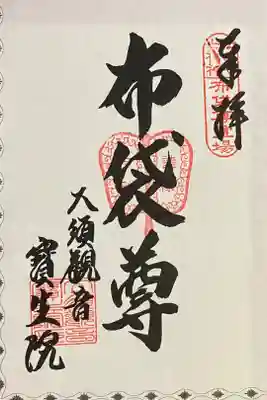 奉拝
布袋尊
大須観音
寶生院